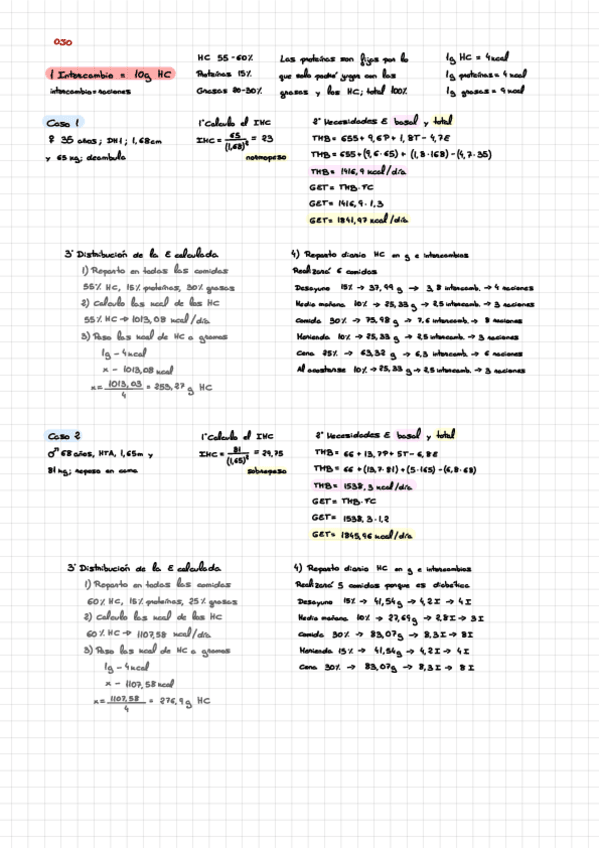 030
1 Intercambio = 10g HC
intercambio = raciones
HC 55 - 60%
Proteínas 15%
Grasas 20-30%
Las proteínas son fijas por lo
que solo podré jugar con las
grasas y los HC; total 100%
1g HC = 4kcal
1g proteínas = 4 kcal
1g grasas = 9 kcal
Caso 1
♀ 35 años; DM1; 1,68cm
y 65 kg; deambula
1º Calculo el IMC
IMC = 65 / (1,68)² = 23
normopeso
2º Necesidades E basal y total
TMB = 655 + 9,6P + 1,8T - 4,7E
TMB = 655 + (9,6·65) + (1,8·168) - (4,7·35)
TMB = 1416,9 kcal/día
GET = TMB·TC
GET = 1416,9·1,3
GET = 1841,97 kcal/día
3º Distribución de la E calculada
1) Reparto en todas las comidas
55% HC, 15% proteínas, 30% grasas
2) Calculo las kcal de los HC
55% HC → 1013,08 kcal/día
3) Paso las kcal de HC a gramos
1g - 4kcal
x - 1013,08 kcal
x = 1013,03 / 4 = 253,27g HC
4) Reparto diario HC en g e intercambios
Realizará 6 comidas
Desayuno 15% → 37,99 g → 3,8 intercamb. → 4 raciones
Media mañana 10% → 25,33 g → 2,5 intercamb. → 3 raciones
Comida 30% → 75,98 g → 7,6 intercamb. → 8 raciones
Merienda 10% → 25,33 g → 2,5 intercamb. → 3 raciones
Cena 25% → 63,32 g → 6,3 intercamb. → 6 raciones
Al acostarse 10% → 25,33 g → 2,5 intercamb. → 3 raciones
Caso 2
♂ 68 años, HTA, 1,65m y
81 kg; reposo en cama
1º Calculo el IMC
IMC = 81 / (1,65)² = 29,75
sobrepeso
2º Necesidades E basal y total
TMB = 66 + 13,7P + 5T - 6,8E
TMB = 66 + (13,7·81) + (5·165) - (6,8·68)
TMB = 1538,3 kcal/día
GET = TMB·TC
GET = 1538,3·1,2
GET = 1845,96 kcal/día
3º Distribución de la E calculada
1) Reparto en todas las comidas
60% HC, 15% proteínas, 25% grasas
2) Calculo las kcal de los HC
60% HC → 1107,58 kcal/día
3) Paso las kcal de HC a gramos
1g - 4kcal
x - 1107,58 kcal
x = 1107,58 / 4 = 276,9g HC
4) Reparto diario HC en g e intercambios
Realizará 5 comidas porque es diabético
Desayuno 15% → 41,54g → 4,2 I → 4 I
Media mañana 10% → 27,69g → 2,8 I → 3 I
Comida 30% → 83,07g → 8,3 I → 8 I
Merienda 15% → 41,54g → 4,2 I → 4 I
Cena 30% → 83,07g → 8,3 I → 8 I